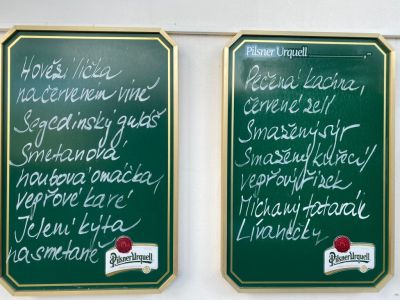 Hovězí líčka
na červeném víně
Segedínský guláš
Smetanová
houbová omáčka,
vepřové karé
Jelení kýta
na smetaně
Pilsner Urquell
Pilsner Urquell
Pečená kachna,
červené zelí
Smažený sýr
Smažený kuřecí/
vepřový řízek
Míchaný tatarák
Lívanečky
Pilsner Urquell